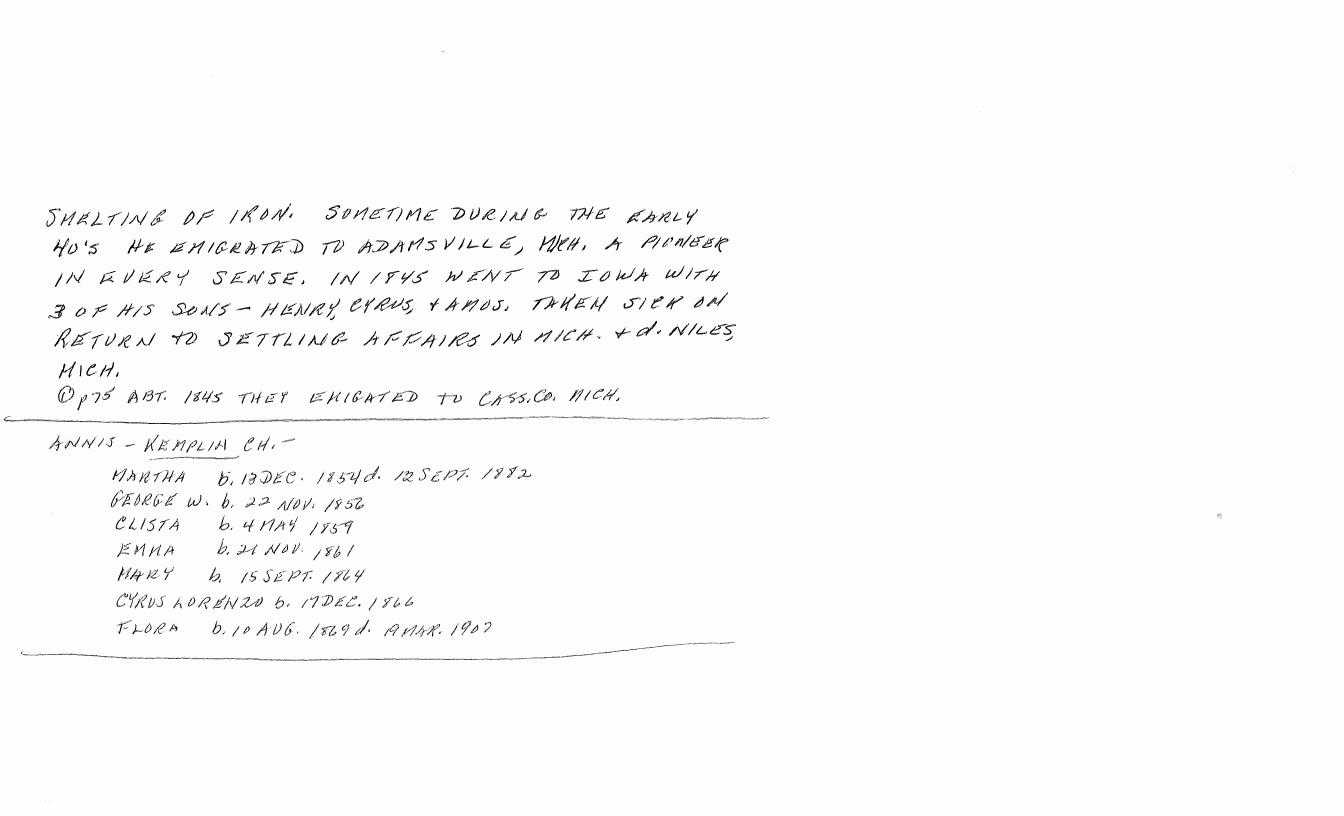 SMELTING OF IRON. SOMETIME DURING THE EARLY
40'S HE EMIGRATED TO ADAMSVILLE, MICH. A PIONEER
IN EVERY SENSE. IN 1845 WENT TO IOWA WITH
3 OF HIS SONS - HENRY, CYRUS, + AMOS. TAKEN SICK ON
RETURN TO SETTLING AFFAIRS IN MICH. + d. NILES,
MICH.
© p75 ABT. 1845 THEY EMIGATED TO CASS. CO. MICH.
ANNIS - KEMPLIN CH. -
MARTHA b. 13 DEC. 1854 d. 12 SEPT. 1882
GEORGE W. b. 22 NOV. 1856
CLISTA b. 4 MAY 1859
EMMA b. 21 NOV. 1861
MARY b. 15 SEPT. 1864
CYRUS LORENZO b. 17 DEC. 1866
FLORA b. 10 AUG. 1869 d. 19 MAR. 1907